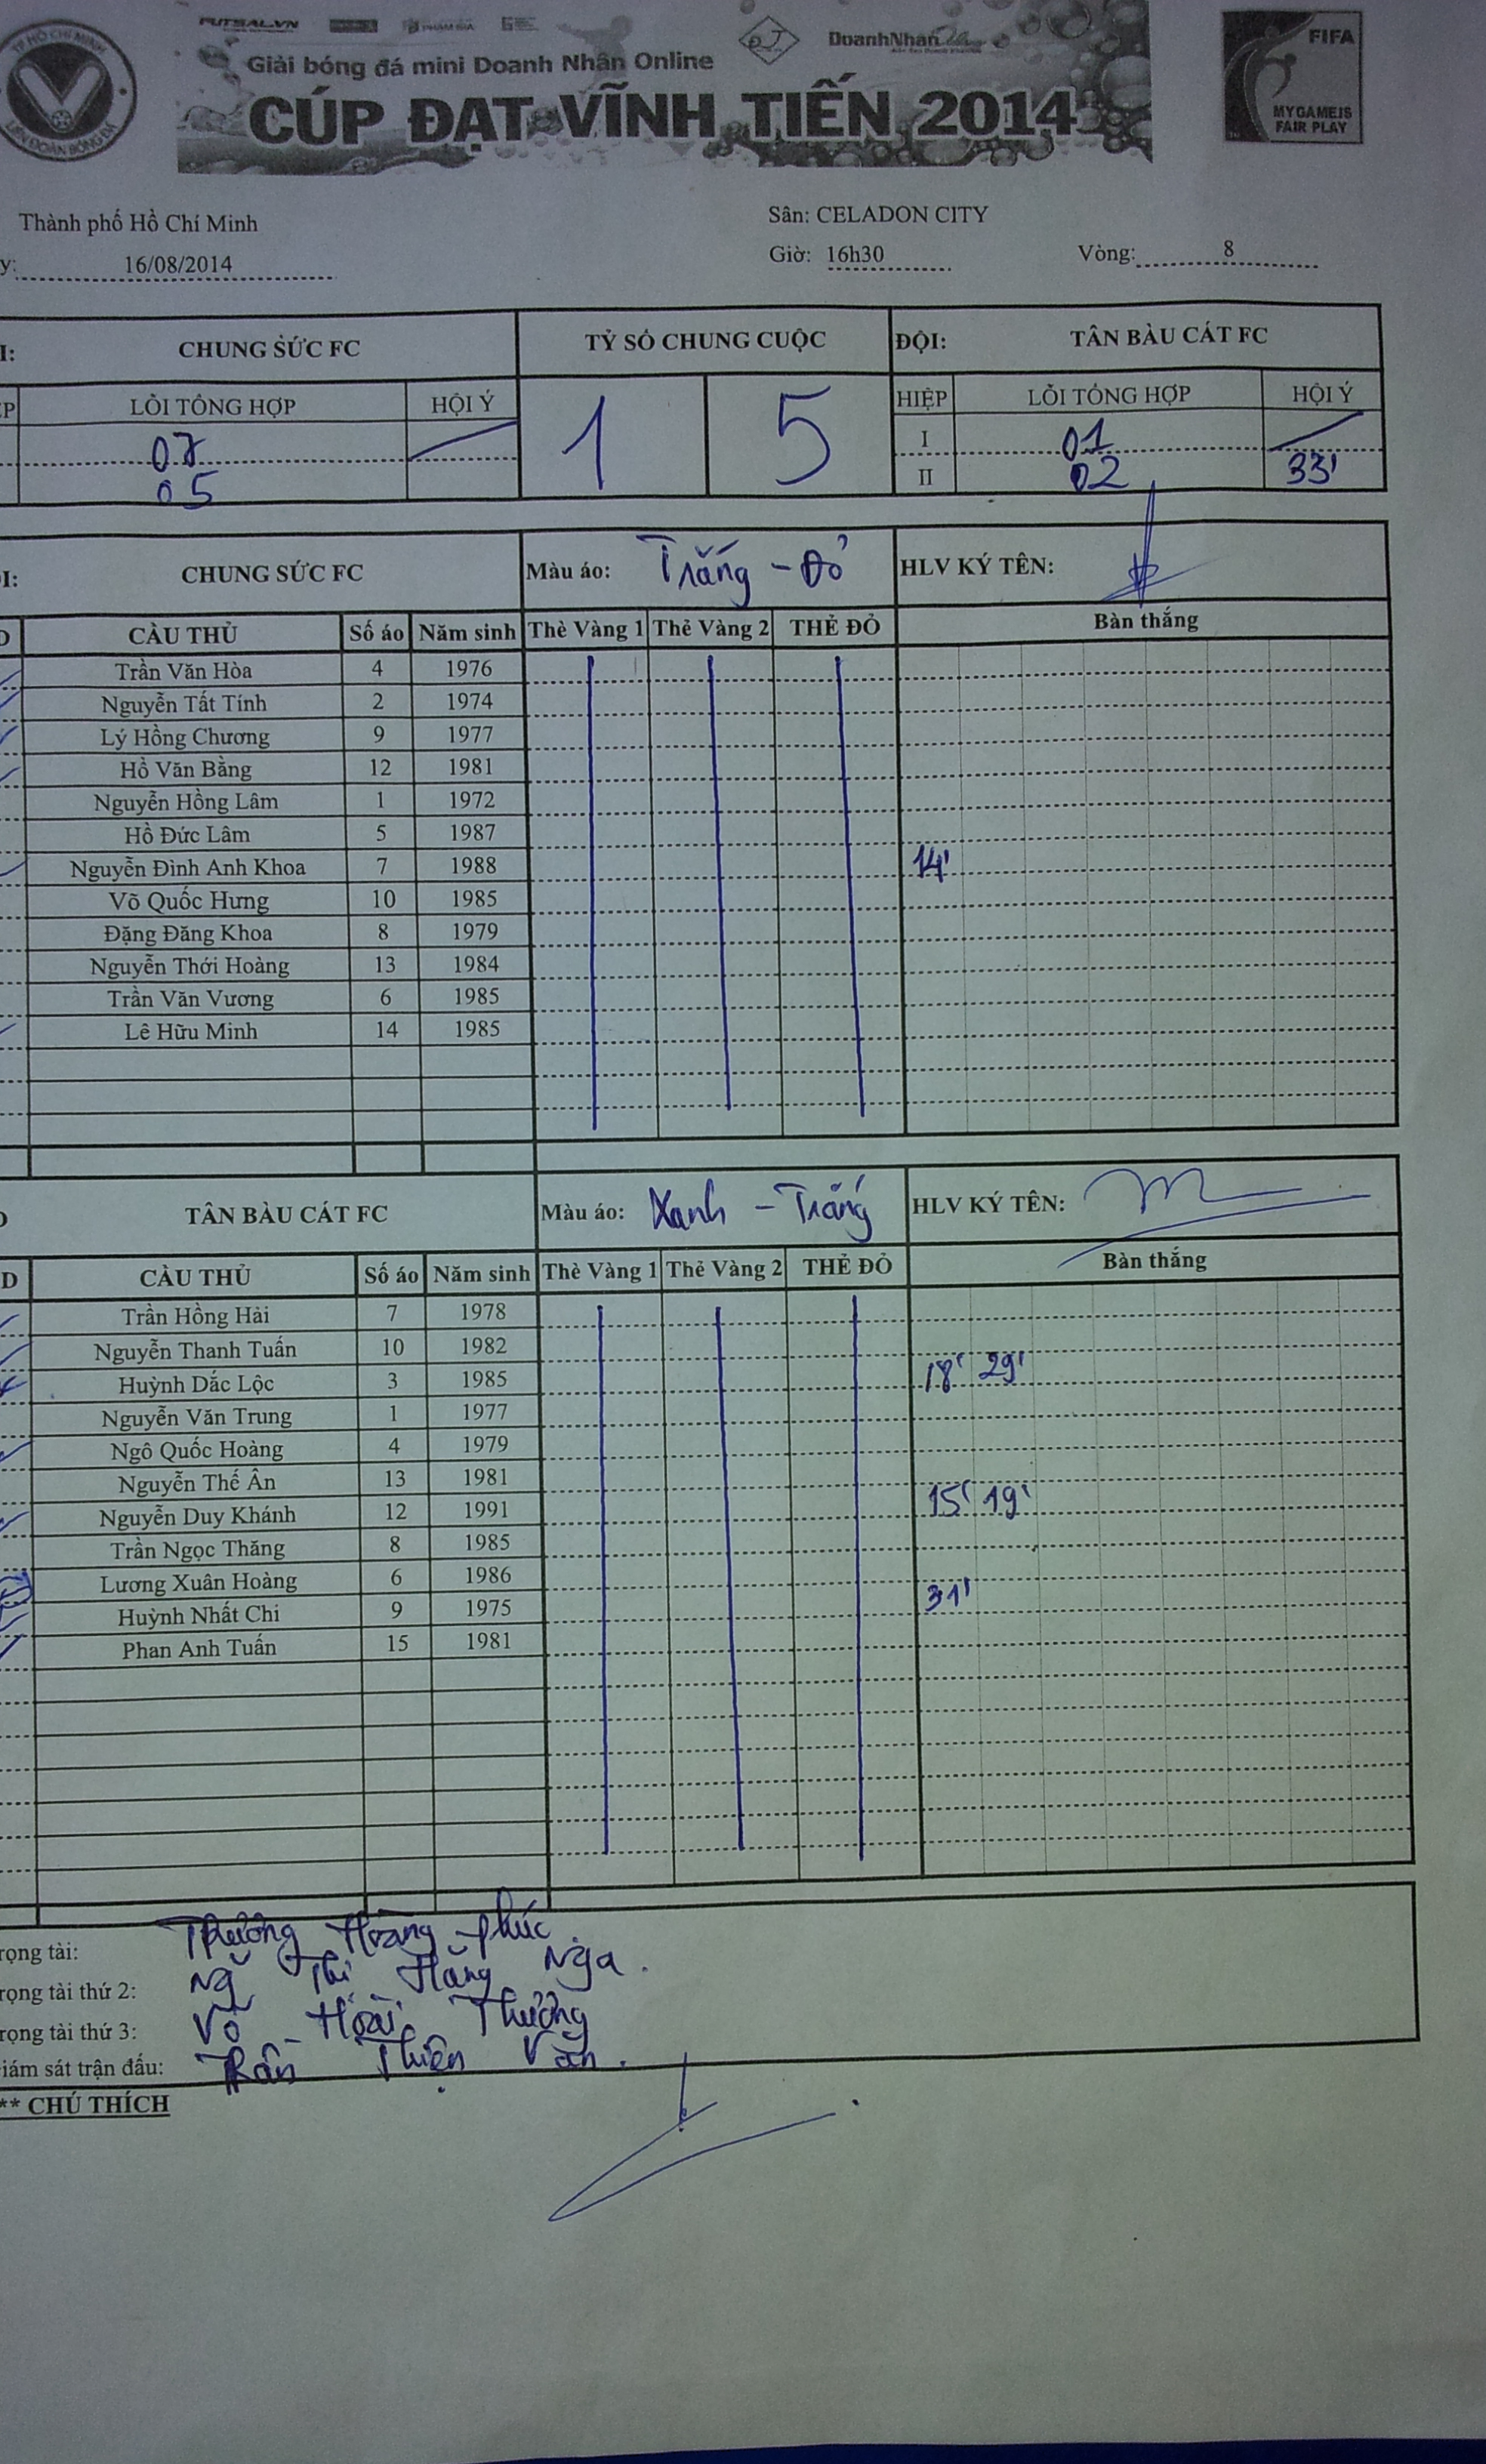 TP HỒ CHÍ MINH
LIÊN ĐOÀN BÓNG ĐÁ
FUTSAL.VN
DoanhNhan
Giải bóng đá mini Doanh Nhân Online
CÚP ĐẠT VĨNH TIẾN 2014
FIFA
MY GAME IS
FAIR PLAY
Thành phố Hồ Chí Minh Sân: CELADON CITY
y: 16/08/2014 Giờ: 16h30 Vòng: 8
I: CHUNG SỨC FC TỶ SỐ CHUNG CUỘC ĐỘI: TÂN BÀU CÁT FC
P LỖI TỔNG HỢP HỘI Ý 1 5 HIỆP LỖI TỔNG HỢP HỘI Ý
07 I 01
05 II 02 33'
I: CHUNG SỨC FC Màu áo: Trắng - Đỏ HLV KÝ TÊN:
CẦU THỦ Số áo Năm sinh Thẻ Vàng 1 Thẻ Vàng 2 THẺ ĐỎ Bàn thắng
Trần Văn Hòa 4 1976
Nguyễn Tất Tính 2 1974
Lý Hồng Chương 9 1977
Hồ Văn Bằng 12 1981
Nguyễn Hồng Lâm 1 1972
Hồ Đức Lâm 5 1987
Nguyễn Đình Anh Khoa 7 1988 14'
Võ Quốc Hưng 10 1985
Đặng Đăng Khoa 8 1979
Nguyễn Thới Hoàng 13 1984
Trần Văn Vương 6 1985
Lê Hữu Minh 14 1985
TÂN BÀU CÁT FC Màu áo: Xanh - Trắng HLV KÝ TÊN:
D CẦU THỦ Số áo Năm sinh Thẻ Vàng 1 Thẻ Vàng 2 THẺ ĐỎ Bàn thắng
Trần Hồng Hải 7 1978
Nguyễn Thanh Tuấn 10 1982
Huỳnh Dắc Lộc 3 1985 18' 29'
Nguyễn Văn Trung 1 1977
Ngô Quốc Hoàng 4 1979
Nguyễn Thế Ân 13 1981
Nguyễn Duy Khánh 12 1991 15' 19'
Trần Ngọc Thăng 8 1985
Lương Xuân Hoàng 6 1986
Huỳnh Nhất Chi 9 1975 31'
Phan Anh Tuấn 15 1981
rọng tài: Trương Hoàng Phúc
rọng tài thứ 2: Ng Thị Hằng Nga.
rọng tài thứ 3: Võ Hoài Thương
iám sát trận đấu: Trần Thiện Văn.
** CHÚ THÍCH